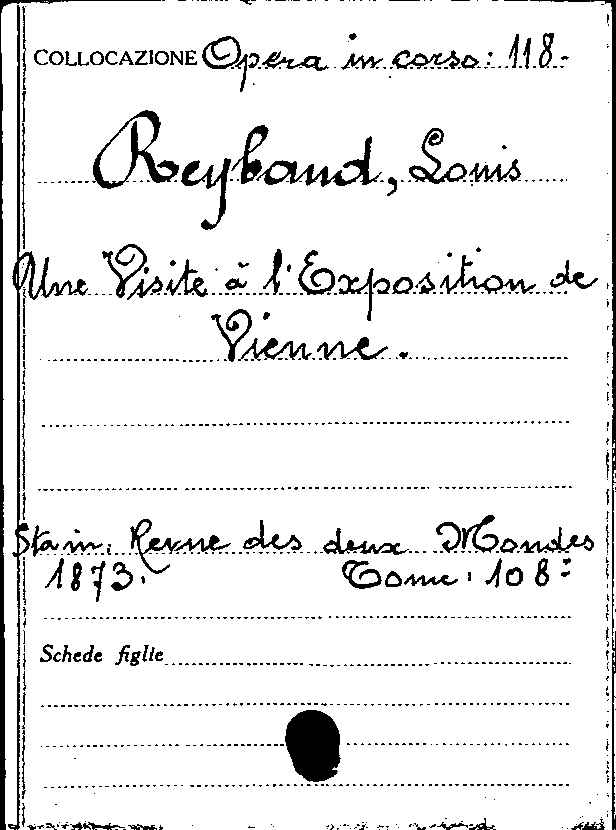 COLLOCAZIONE Opera in corso: 118.
Reybaud, Louis
Une Visite à l'Exposition de
Vienne.
Sta in: Revue des deux Mondes
1873. Tome: 108:
Schede figlie